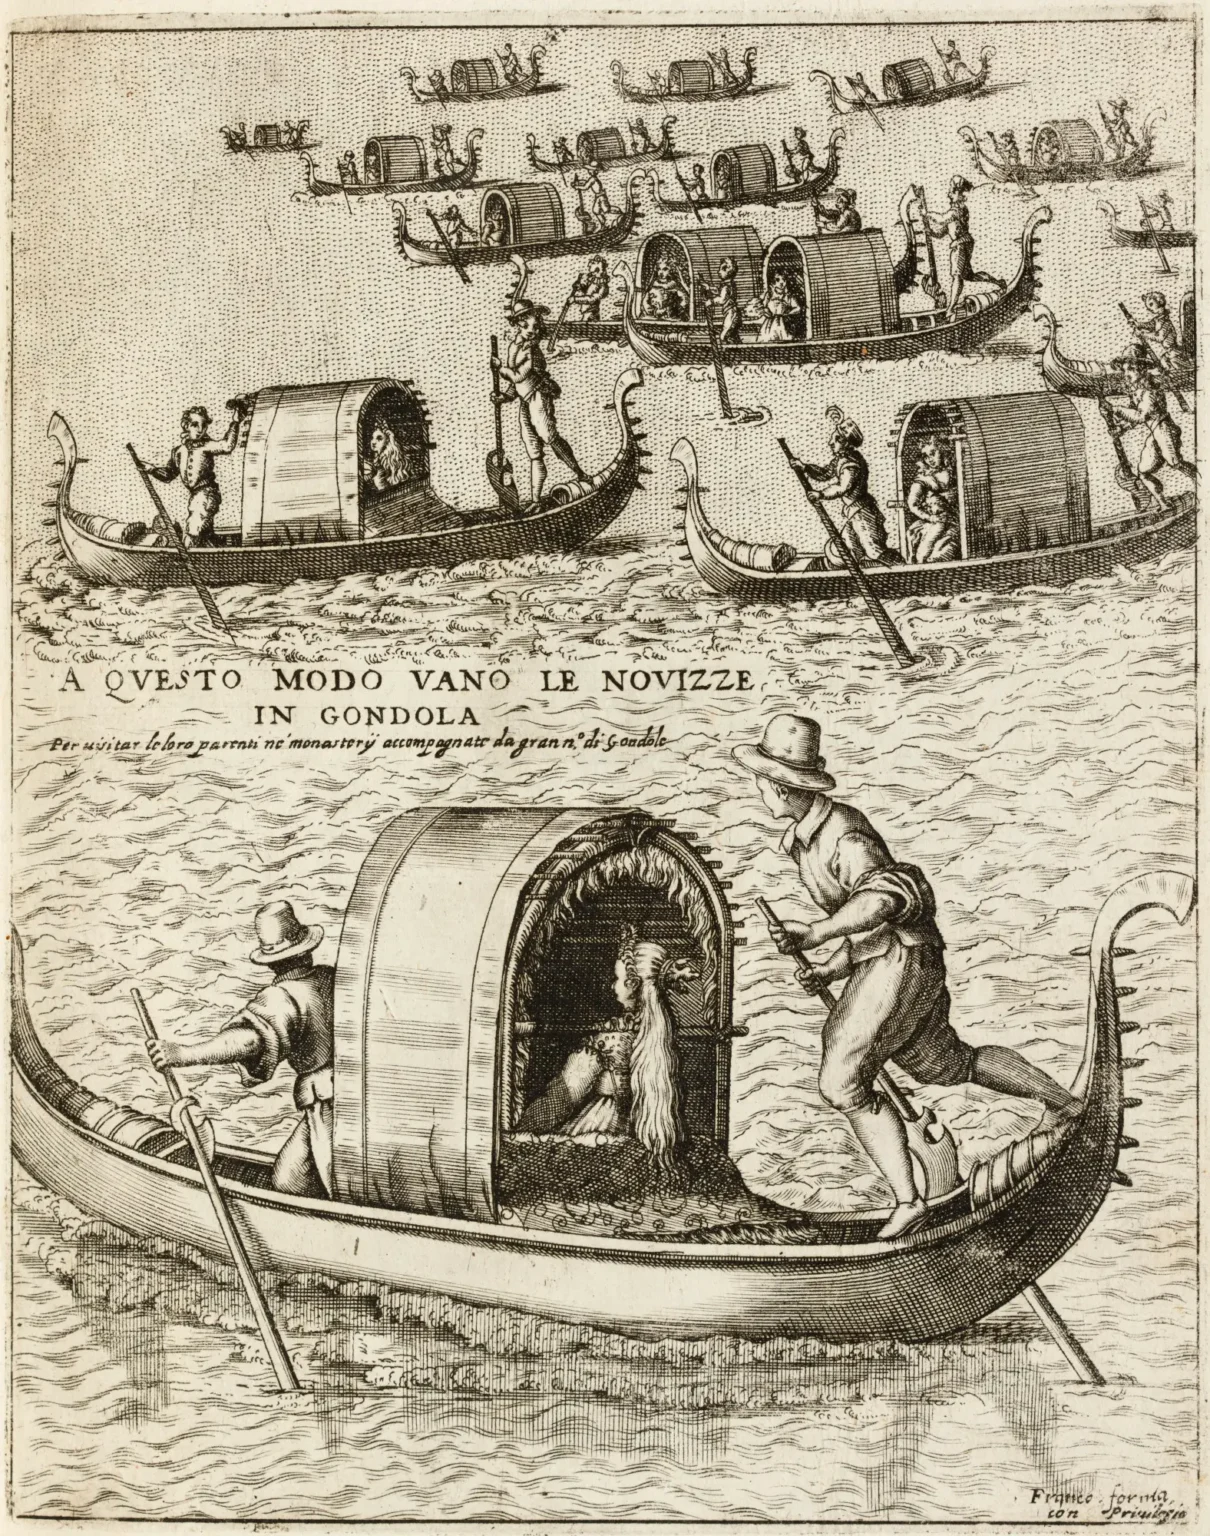 A QVESTO MODO VANO LE NOVIZZE
IN GONDOLA
Per uisitar le loro parenti ne' monasterij accompagnate da gran n.º di Gondole
Franco forma
con Priuilegio